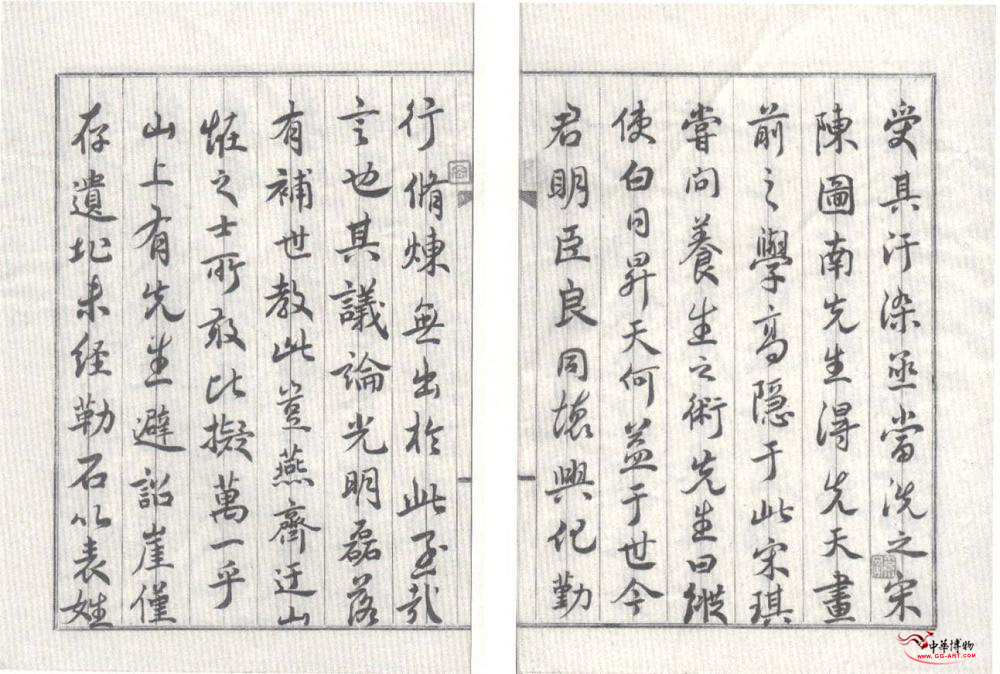 受其汙染亟當洗之宋
陳圖南先生得先天畫
前之學高隱于此宋琪
嘗問養生之術先生曰縱
使白日昇天何益于世今
君明臣良同德興化勤
行脩煉無出於此至哉
言也其議論光明磊落
有補世教此豈燕齊迂
恠之士所敢比擬萬一乎
山上有先生避詔崖僅
存遺址未經勒石以表姓
中華博物
www.gg-art.com